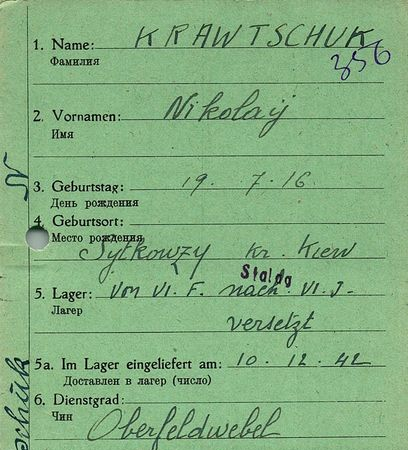 1. Name: KRAWTSCHUK
Фамилия
356
2. Vornamen: Nikolaij
Имя
N
3. Geburtstag: 19. 7. 16.
День рождения
4. Geburtsort:
Место рождения
Sytkowzy Kr. Kiew
Stalag
5. Lager: von VI. F. nach VI. J.
Лагер
versetzt
5a. Im Lager eingeliefert am: 10. 12. 42
Доставлен в лагер (число)
6. Dienstgrad:
Чин
Oberfeldwebel
schuk